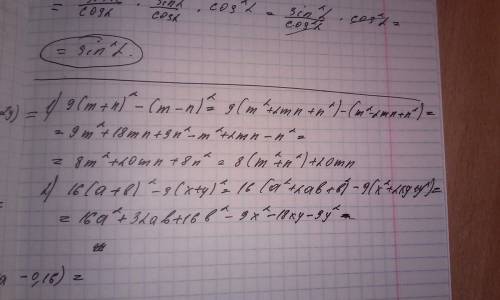 = sinα/cosα · sinα/cosα · cos²α = sin²α/cos²α · cos²α =
= sin²α.
1) 9(m+n)² - (m-n)² = 9(m²+2mn+n²)-(m²-2mn+n²)=
= 9m²+18mn+9n²-m²+2mn-n²=
= 8m²+20mn+8n² = 8(m²+n²)+20mn
2) 16(a+b)²-9(x+y)² = 16(a²+2ab+b²)-9(x²+2xy+y²)=
= 16a²+32ab+16b²-9x²-18xy-9y²=
a -0,16) =